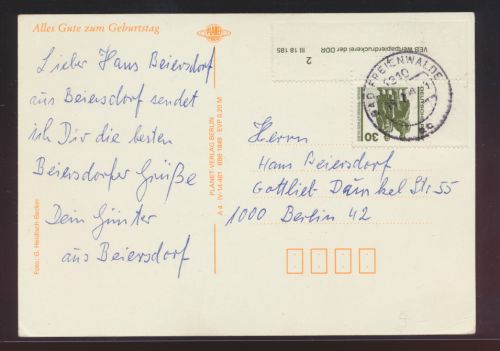 Alles Gute zum Geburtstag
PLANET
Lieber Hans Beiersdorf
aus Beiersdorf sendet
ich Dir die besten
Beiersdorfer Grüße
Dein Günter
aus Beiersdorf
Foto: G. Heidisch-Becker
PLANET-VERLAG BERLIN
EVP 0,20 M
VEB Wertpapierdruckerei der DDR
III 18 185
2
BAD FREIENWALDE
1310
30
Herrn
Hans Beiersdorf
Gottlieb Dunkel Str. 55
1000 Berlin 42